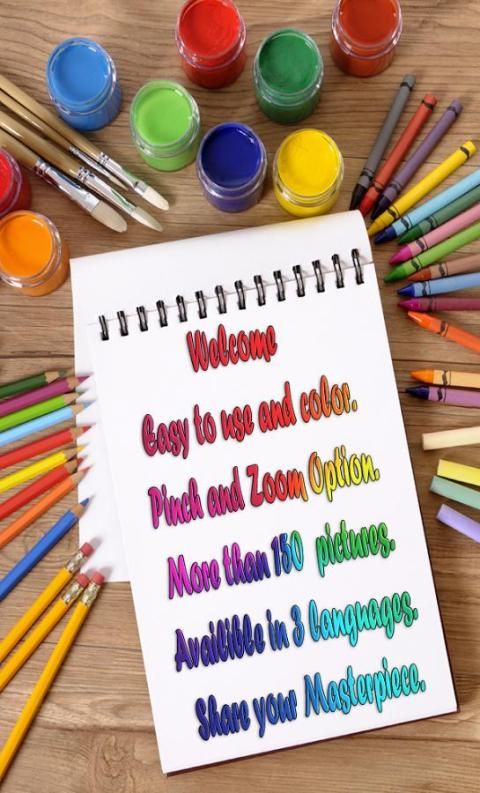 Welcome
Easy to use and color.
Pinch and Zoom Option.
More than 150 pictures.
Availible in 3 languages.
Share your Masterpiece.